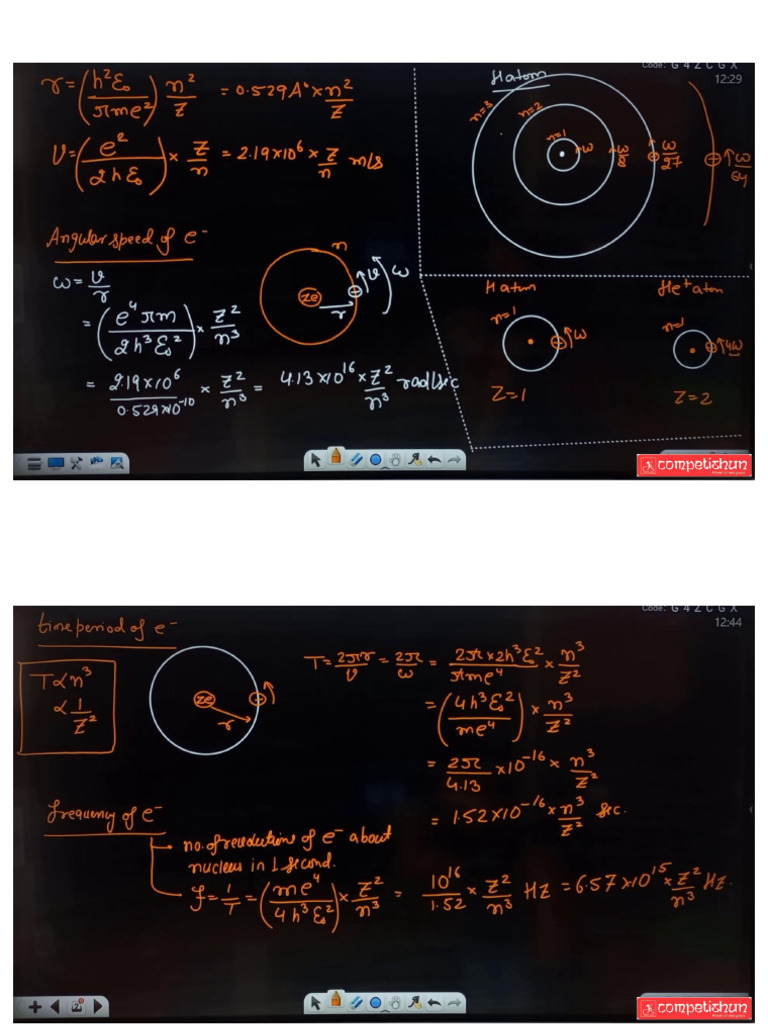 Code: G 4 Z C G X
12:29
r = (h²ε₀/πme²) n²/Z = 0.529 A° × n²/Z
v = (e²/2hε₀) × Z/n = 2.19×10⁶ × Z/n m/s
Angular speed of e⁻
ω = v/r
= (e⁴πm/2h³ε₀²) × Z²/n³
= 2.19×10⁶/0.529×10⁻¹⁰ × Z²/n³ = 4.13×10¹⁶ × Z²/n³ rad/sec
n
ze
r
v
ω
H atom
n=3
n=2
n=1
ω
ω/8
ω/27
ω/64
H atom
n=1
ω
Z=1
He⁺ atom
n=1
4ω
Z=2
competishun
Code: G 4 Z C G X
12:44
time period of e⁻
T∝n³
∝ 1/Z²
ze
r
T = 2πr/v = 2π/ω = 2π×2h³ε₀²/πme⁴ × n³/Z²
= (4h³ε₀²/me⁴) × n³/Z²
= 2π/4.13 ×10⁻¹⁶ × n³/Z²
= 1.52×10⁻¹⁶ × n³/Z² sec.
frequency of e⁻
no. of revolution of e⁻ about
nucleus in 1 second.
f = 1/T = (me⁴/4h³ε₀²) × Z²/n³ = 10¹⁶/1.52 × Z²/n³ HZ = 6.57×10¹⁵ × Z²/n³ HZ.
2
competishun